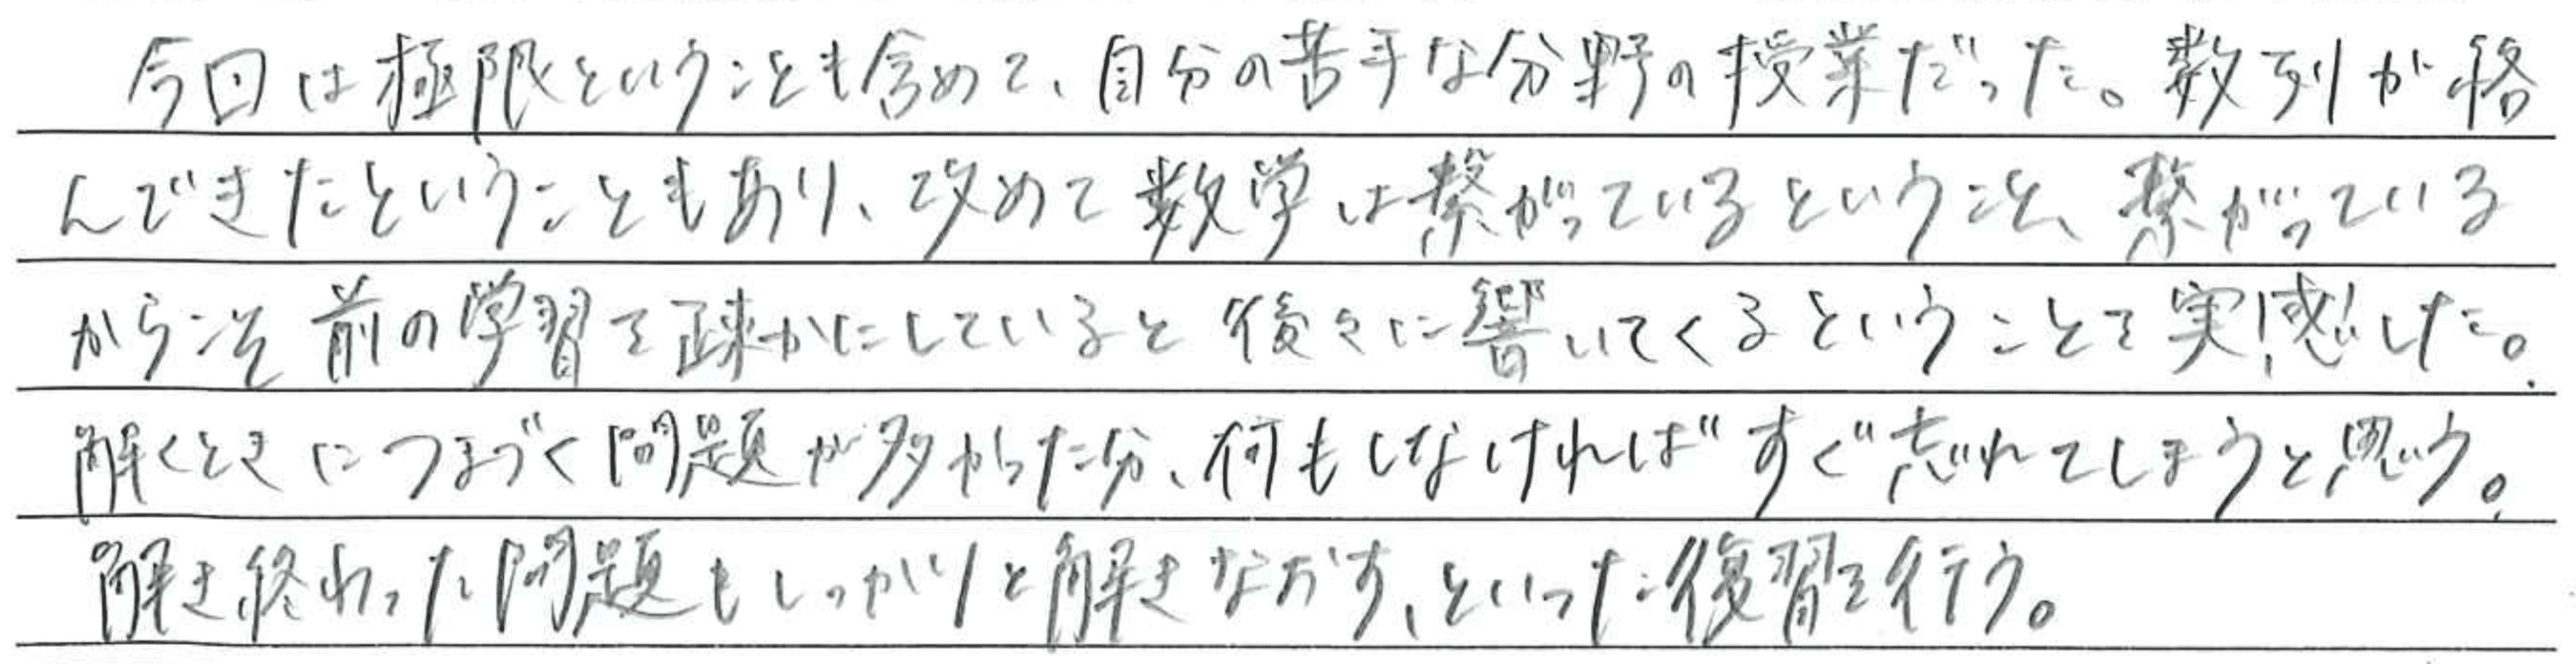 今回は極限ということも含めて、自分の苦手な分野の授業だった。数列が絡
んできたということもあり、改めて数学は繋がっているということ、繋がっている
からこそ前の学習を疎かにしていると後々に響いてくるということを実感した。
解くときにつまづく問題が多かった分、何もしなければすぐ忘れてしまうと思う。
解き終わった問題もしっかりと解きなおす、といった復習を行う。